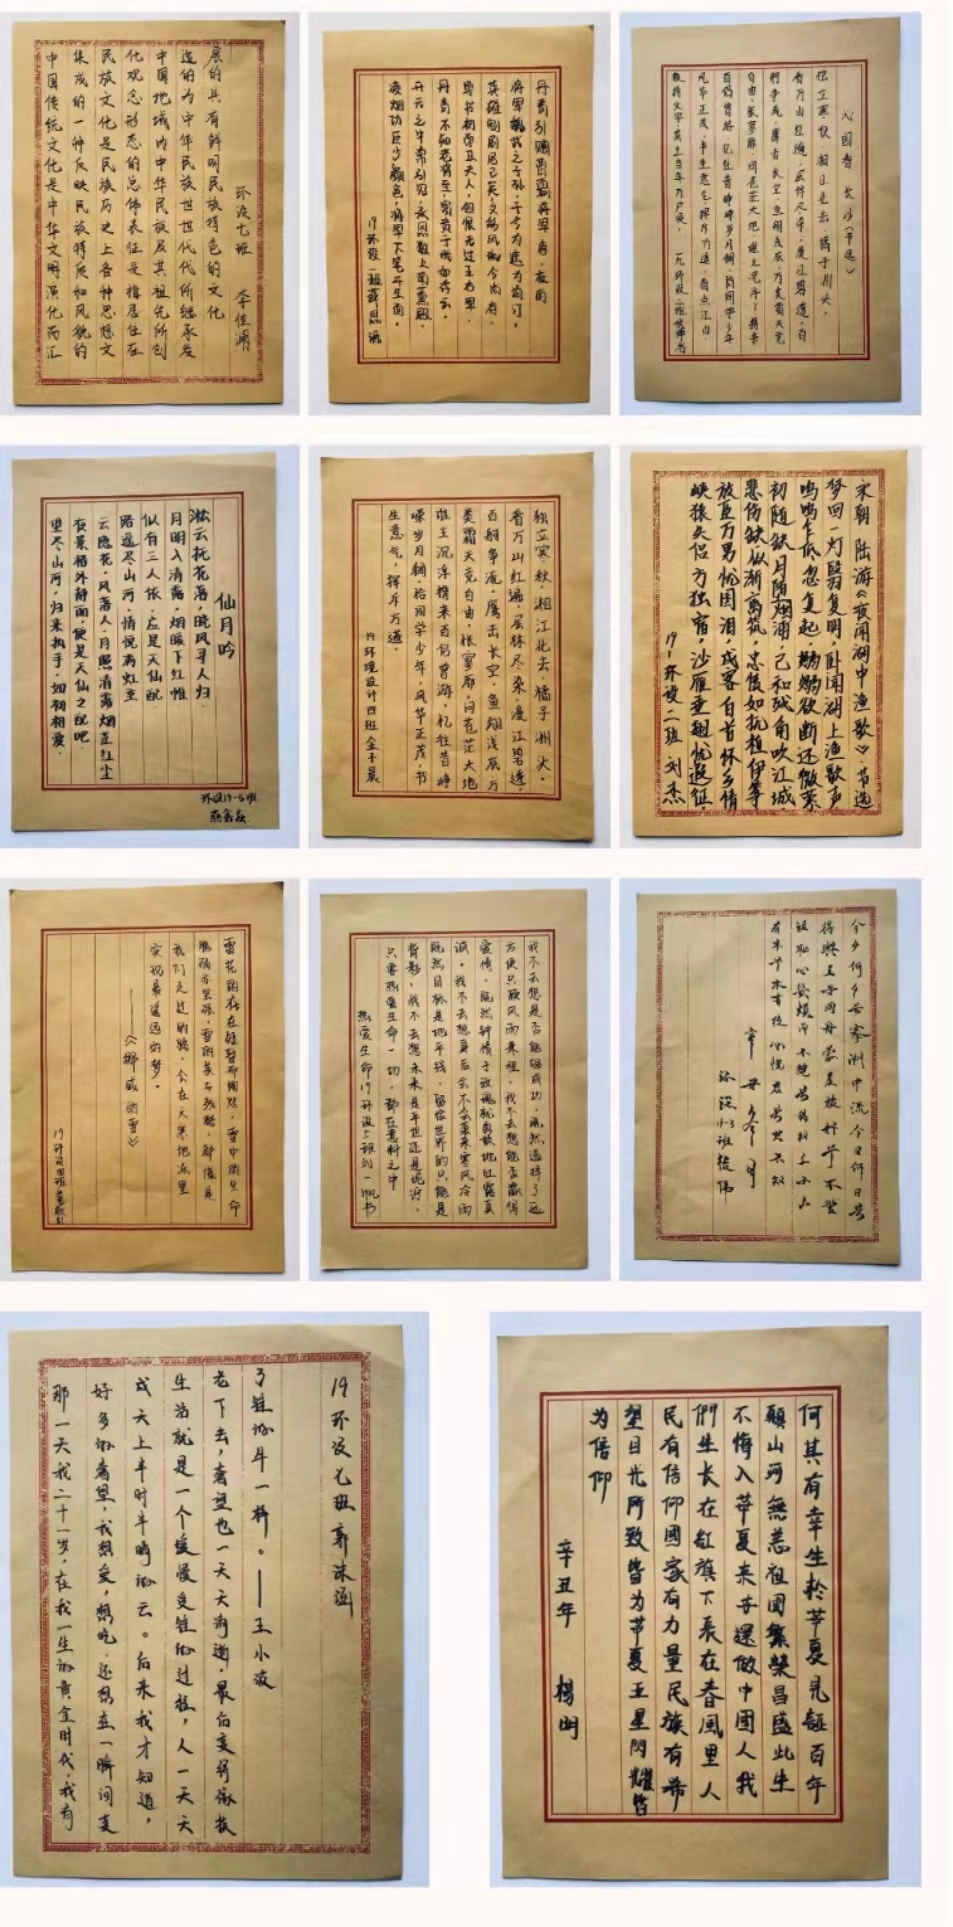 中国传统文化是中华文明演化而汇
集成的一种反映民族特质和风貌的
民族文化是民族历史上各种思想文
化观念形态的总体表征是指居住在
中国地域内中华民族及其祖先所创
造的为中华民族世世代代所继承发
展的具有鲜明民族特色的文化
环设七班 李佳澜
丹青引赠曹霸将军 唐 杜甫
将军魏武之子孙，于今为庶为清门，
英雄割据虽已矣，文彩风流今尚存。
学书初学卫夫人，但恨无过王右军。
丹青不知老将至，富贵于我如浮云。
开元之中常引见，承恩数上南薰殿。
凌烟功臣少颜色，将军下笔开生面。
19环设一班薛思涵
沁园春 长沙（节选）
独立寒秋，湘江北去，橘子洲头。
看万山红遍，层林尽染，漫江碧透，百
舸争流，鹰击长空，鱼翔浅底，万类霜天竞
自由，怅寥廓，问苍茫大地，谁主沉浮？携来
百侣曾游，忆往昔峥嵘岁月稠，恰同学少年
风华正茂，书生意气，挥斥方遒，指点江山，
激扬文字，粪土当年万户侯。 一九环设二班
仙月吟
淞云托花落，晓风寻人归.
月明入清落，烟暖下红帷
似有三人依，应是天仙配
路遥尽山河，情悦满虹至
云隐花，风落人，月照清露烟茫红尘
夜景格外静丽，便是天仙之配吧.
望尽山河，归来执手，如初相爱.
环设19-5班
独立寒秋，湘江北去，橘子洲头。
看万山红遍，层林尽染，漫江碧透，
百舸争流，鹰击长空，鱼翔浅底，万
类霜天竞自由，怅寥廓，问苍茫大地
谁主沉浮，携来百侣曾游，忆往昔峥
嵘岁月稠，恰同学少年，风华正茂，书
生意气，挥斥方遒。
19环境设计四班金子晨
宋朝 陆游《夜闻湖中渔歌》节选
梦回一灯翳复明，卧闻湖上渔歌声，
呜呜乍低忽复起，袅袅欲断还微萦
初随缺月堕烟浦，已和残角吹江城，
悲伤似渐离筑，忠愤如抗桓伊筝
放臣万男忧国泪，戍客白首怀乡情
峡猿失侣方独宿，沙雁垂翅忧遐征，
19-环设二班 刘杰
雪花的存在轻暂而绚烂，雪中的生命
脆弱亦坚强，雪的美与残酷，都像是
我们走过的路，会在天寒把冰里
实现最遥远的梦。
——《挪威的雪》
19环设四班
我不去想是否能够成功，既然选择了远
方便只顾风雨兼程，我不去想能否赢得
爱情，既然钟情于玫瑰就勇敢地吐露真
诚，我不去想身后会不会袭来寒风冷雨
既然目标是地平线，留给世界的只能是
背影，我不去想未来是平坦还是泥泞，
只要热爱生命一切，都在意料之中
热爱生命19环设三班刘一帆书
今夕何夕兮搴洲中流今日何日兮
得与王子同舟蒙羞被好兮不訾
诟耻心几烦而不绝兮得知王子山
有木兮木有枝心悦君兮君不知
环设19-3班
那一天我二十一岁，在我一生的黄金时代，我有
好多的奢望，我想爱，想吃，还想在一瞬间变
成天上半时半暗的云。后来我才知道，
生活就是一个缓慢受锤的过程，人一天天
老下去，奢望也一天天消逝，最后变得像挨
了锤的牛一样。——王小波
19环设七班郭沫涵
何其有幸生於華夏見証百年
顛山河無恙祖國繁榮昌盛此生
不悔入華夏来世還做中國人我
們生长在紅旗下長在春風里人
民有信仰國家有力量民族有希
望目光所致皆为華夏五星閃耀皆
为信仰
辛丑年 楊明